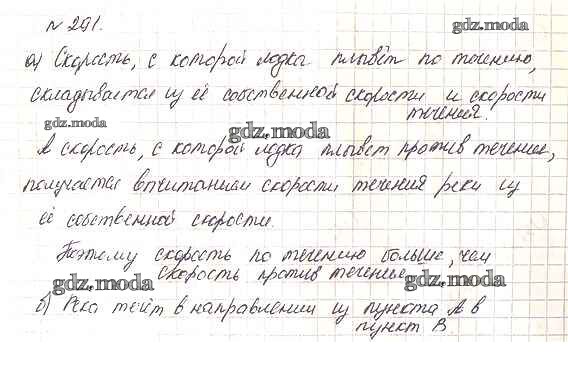 № 291.
gdz.moda
а) Скорость, с которой лодка плывёт по течению,
складывается из её собственной скорости и скорости
течения.
gdz.moda
gdz.moda
А скорость, с которой лодка плывет против течение,
получается впчитанием скорости течения реки из
её собственной скорости.
Поэтому скорость по течению больше, чем
скорость против течение
gdz.moda
gdz.moda
б) Река течёт в направлении из пункта А в
пункт В.